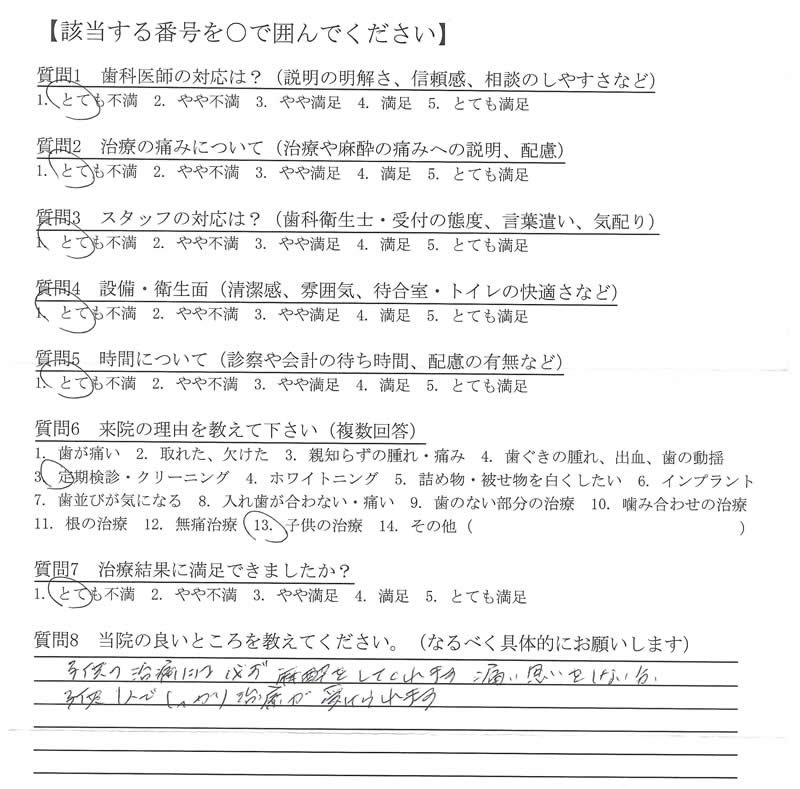 【該当する番号を○で囲んでください】
質問1 歯科医師の対応は？（説明の明解さ、信頼感、相談のしやすさなど）
1. とても不満 2. やや不満 3. やや満足 4. 満足 5. とても満足
質問2 治療の痛みについて（治療や麻酔の痛みへの説明、配慮）
1. とても不満 2. やや不満 3. やや満足 4. 満足 5. とても満足
質問3 スタッフの対応は？（歯科衛生士・受付の態度、言葉遣い、気配り）
1. とても不満 2. やや不満 3. やや満足 4. 満足 5. とても満足
質問4 設備・衛生面（清潔感、雰囲気、待合室・トイレの快適さなど）
1. とても不満 2. やや不満 3. やや満足 4. 満足 5. とても満足
質問5 時間について（診察や会計の待ち時間、配慮の有無など）
1. とても不満 2. やや不満 3. やや満足 4. 満足 5. とても満足
質問6 来院の理由を教えて下さい（複数回答）
1. 歯が痛い 2. 取れた、欠けた 3. 親知らずの腫れ・痛み 4. 歯ぐきの腫れ、出血、歯の動揺
3. 定期検診・クリーニング 4. ホワイトニング 5. 詰め物・被せ物を白くしたい 6. インプラント
7. 歯並びが気になる 8. 入れ歯が合わない・痛い 9. 歯のない部分の治療 10. 噛み合わせの治療
11. 根の治療 12. 無痛治療 13. 子供の治療 14. その他（ ）
質問7 治療結果に満足できましたか？
1. とても不満 2. やや不満 3. やや満足 4. 満足 5. とても満足
質問8 当院の良いところを教えてください。（なるべく具体的にお願いします）
子供の治療には必ず麻酔をしてくれます 痛い思いをしない分
子供1人でしっかり治療が受けられます